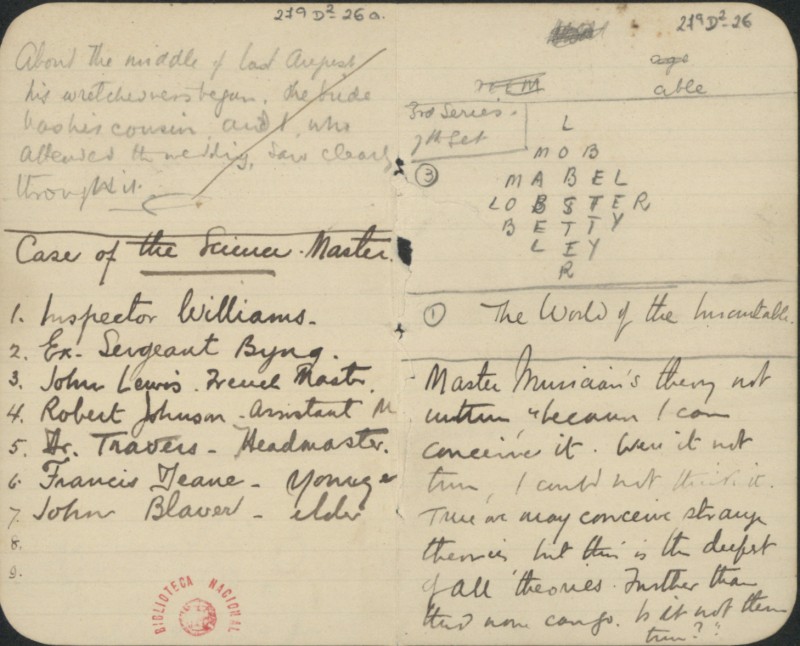 219 D²-26a.
About the middle of last August
his wretchedness began. The bride
was his cousin, and I, who
attended the wedding, saw clearly
through it.
Case of the Science Master.
1. Inspector Williams.
2. Ex-Sergeant Byng.
3. John Lewis. French Master.
4. Robert Johnson - Assistant M
5. Dr. Travers - Headmaster.
6. Francis Jeane - younger
7. John Blaver - elder
8.
9.
BIBLIOTECA NACIONAL
219 D²-26
age
able
3rd Series.
7th Set
③
L
MOB
MABEL
LOBSTER
BETTY
LEY
R
① The World of the Inscrutable.
Master Musician's theory not
"because I can
conceive it. Were it not
true, I could not think it.
True we may conceive strange
theories, but this is the deepest
of all theories. Further than
this none can go. Is it not then
true?"